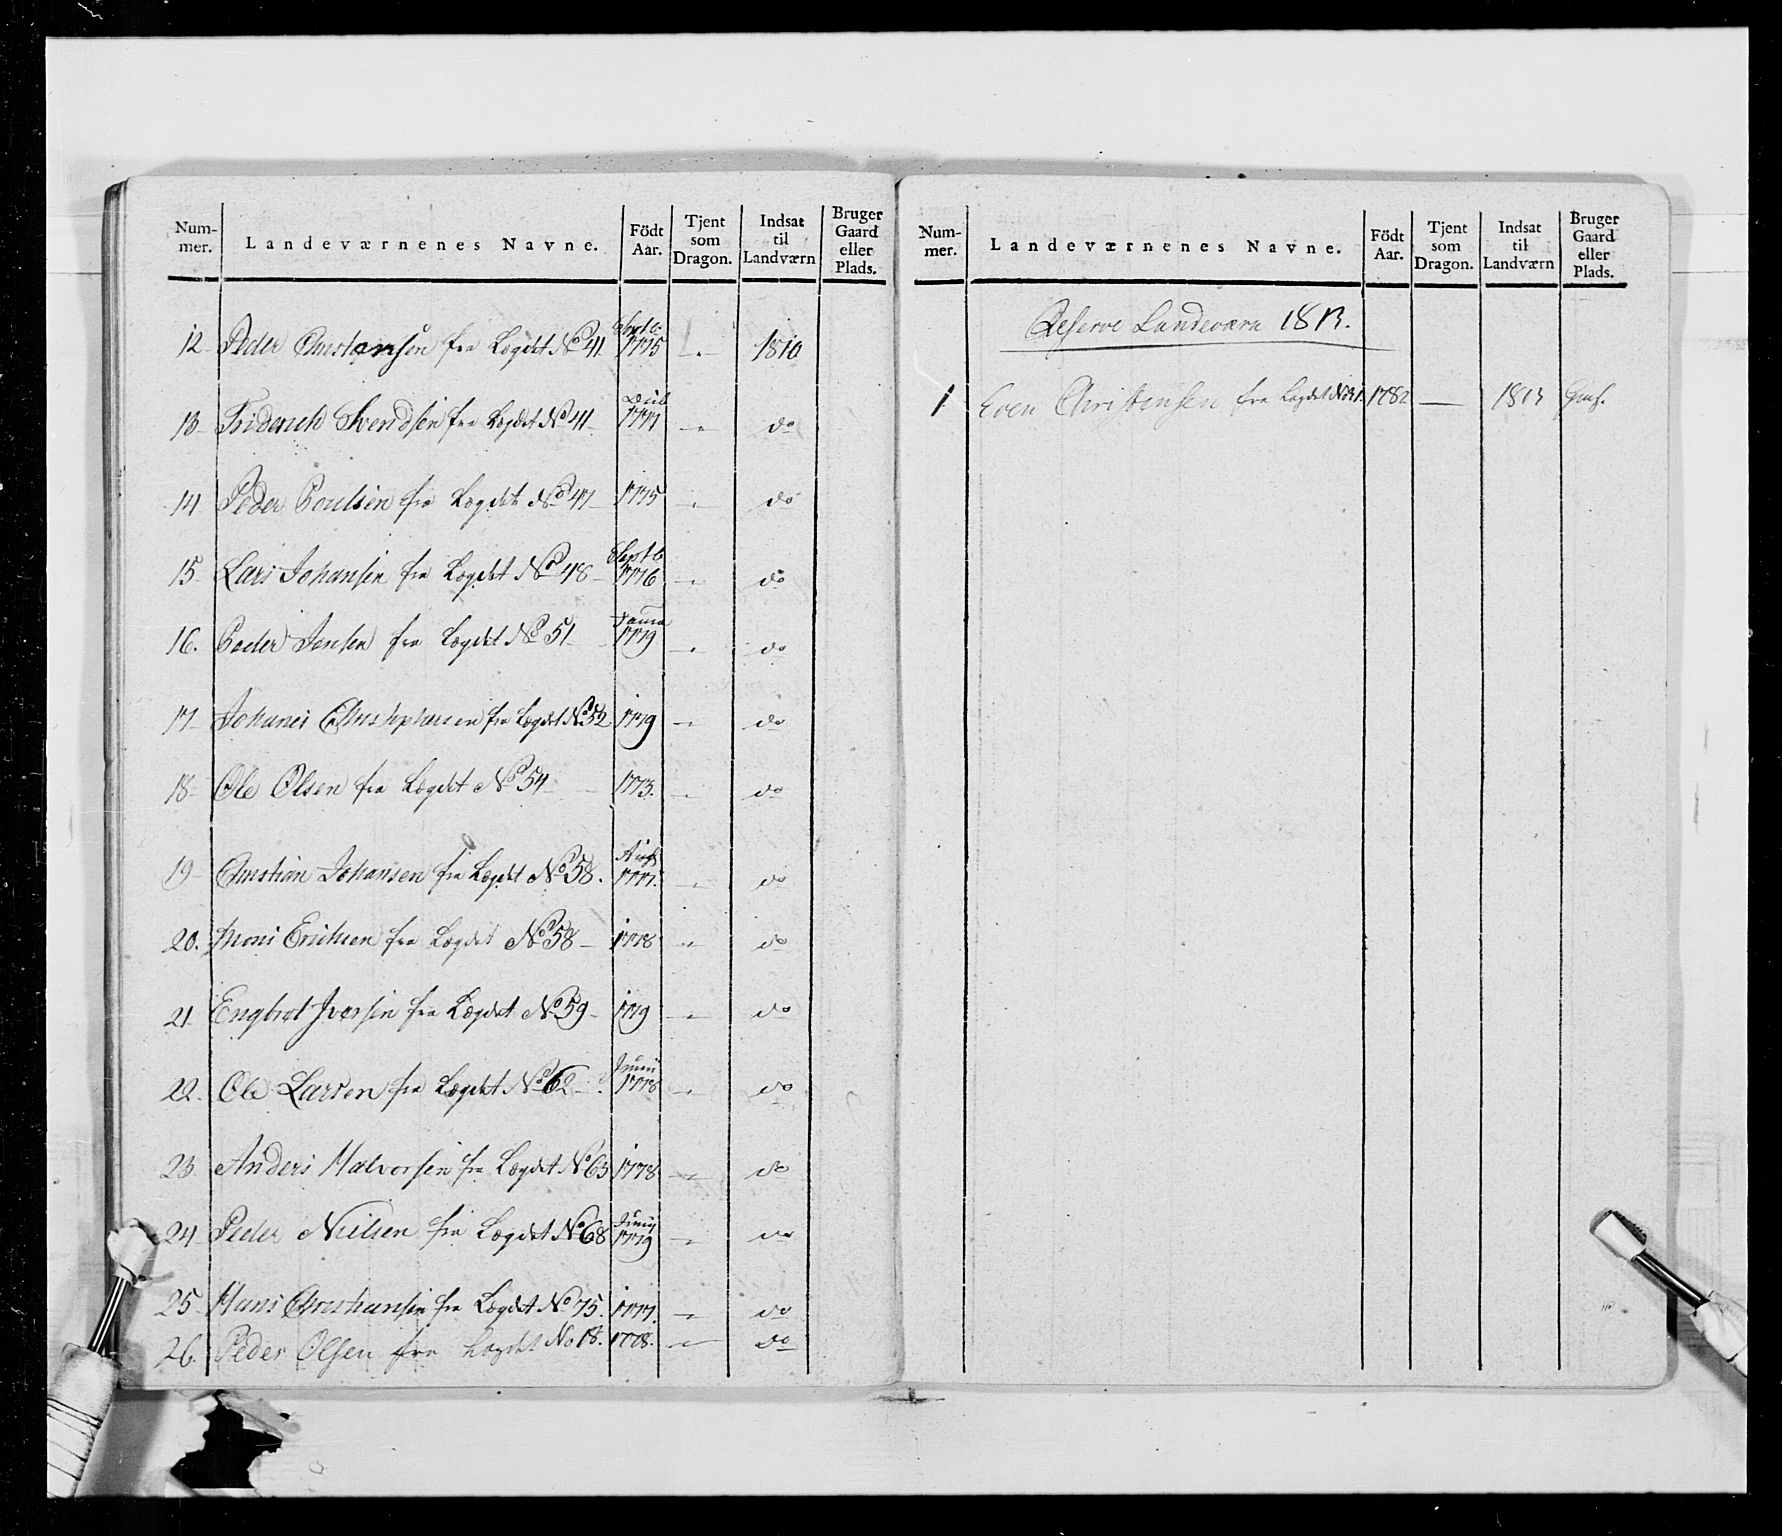 Num-
mer.
Landeværnenes Navne.
Födt
Aar.
Tjent
som
Dragon.
Indsat
til
Landværn
Bruger
Gaard
eller
Plads.
12 Peder Christansen fra Lægdet No 41 Septb. 1775 " 1810
13 Friderich Svendsen fra Lægdet No 41 1777 " do
14 Peder Poulsen fra Lægdet No 47 1775 " do
15 Lars Johansen fra Lægdet No 48 Septb 1776 " do
16. Peder Jensen fra Lægdet No 51 1779 " do
17 Johanes Christophersen fra Lægdet No 52 1779 " do
18 Ole Olsen fra Lægdet No 54 1773. " do
19 Christian Johansen fra Lægdet No 58. Aug 1777. " do
20. Moni Erichsen fra Lægdet No 58 1778 " do
21 Engbret Iversen fra Lægdet No 59 1779 " do
22. Ole Larsen fra Lægdet No 62 Junii 1778 " do
23. Anders Halvorsen fra Lægdet No 63 1778 " do
24 Peder Nielsen fra Lægdet No 68 Junij 1779 " do
25 Hans Christiansen fra Lægdet No 75. 1777. " do
26. Peder Olsen fra Lægdet No 18. 1778. " do
Num-
mer.
Landeværnenes Navne.
Födt
Aar.
Tjent
som
Dragon.
Indsat
til
Landværn
Bruger
Gaard
eller
Plads.
Reserve Landeværn 1813.
1. Even Christensen fra Lægdet No 31. 1782 — 1813